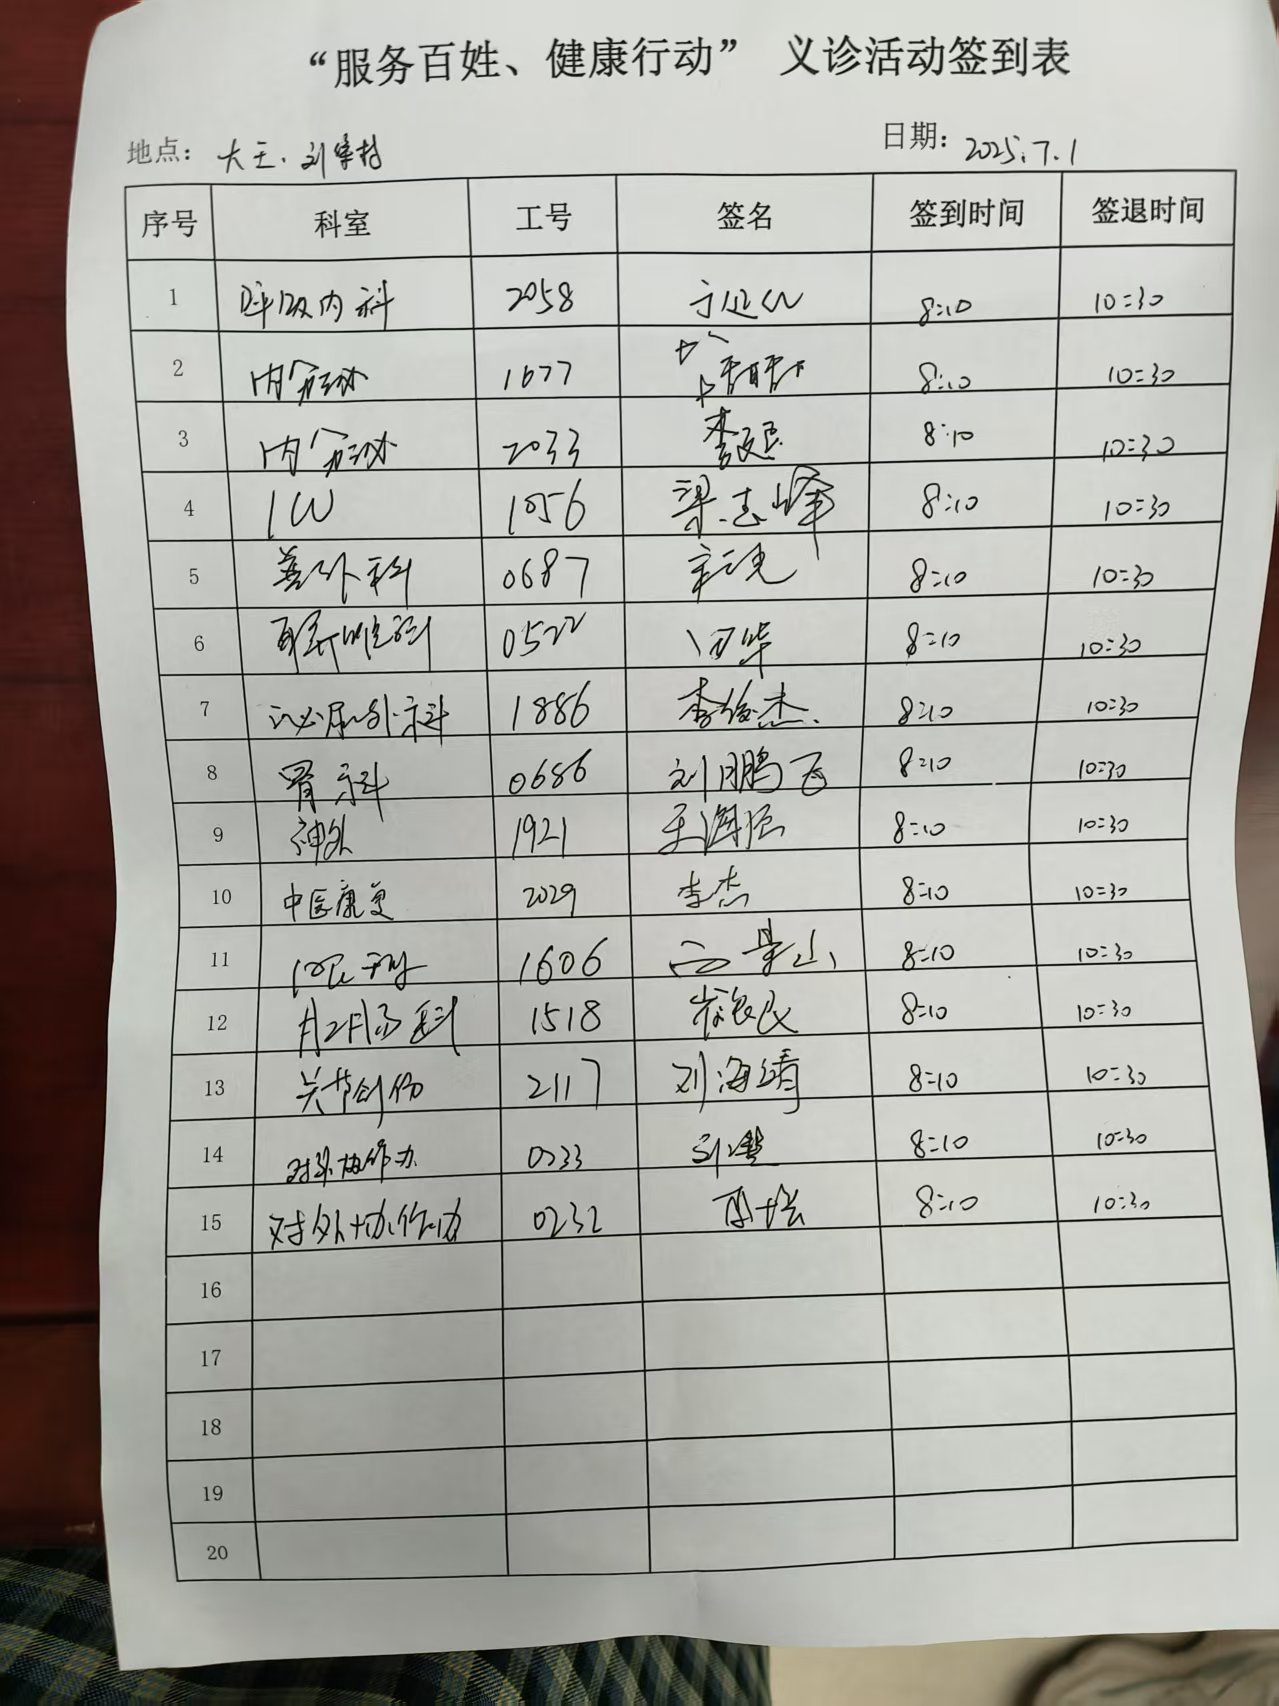 “服务百姓、健康行动” 义诊活动签到表
地点： 大王、刘 村 日期： 2025.7.1
序号 科室 工号 签名 签到时间 签退时间
1 呼吸内科 2058 8:10 10:30
2 内分泌 1677 8:10 10:30
3 内分泌 2033 8:10 10:30
4 ICU 1056 梁志峰 8:10 10:30
5 普外科 0687 8:10 10:30
6 耳鼻喉科 0522 8:10 10:30
7 泌尿外科 1886 李俊杰 8:10 10:30
8 骨科 0686 刘鹏飞 8:10 10:30
9 神外 1921 8:10 10:30
10 中医康复 2029 李杰 8:10 10:30
11 眼科 1606 8:10 10:30
12 肛肠科 1518 8:10 10:30
13 关节创伤 2117 刘海靖 8:10 10:30
14 对外协作办 0233 8:10 10:30
15 对外协作办 0232 8:10 10:30
16
17
18
19
20